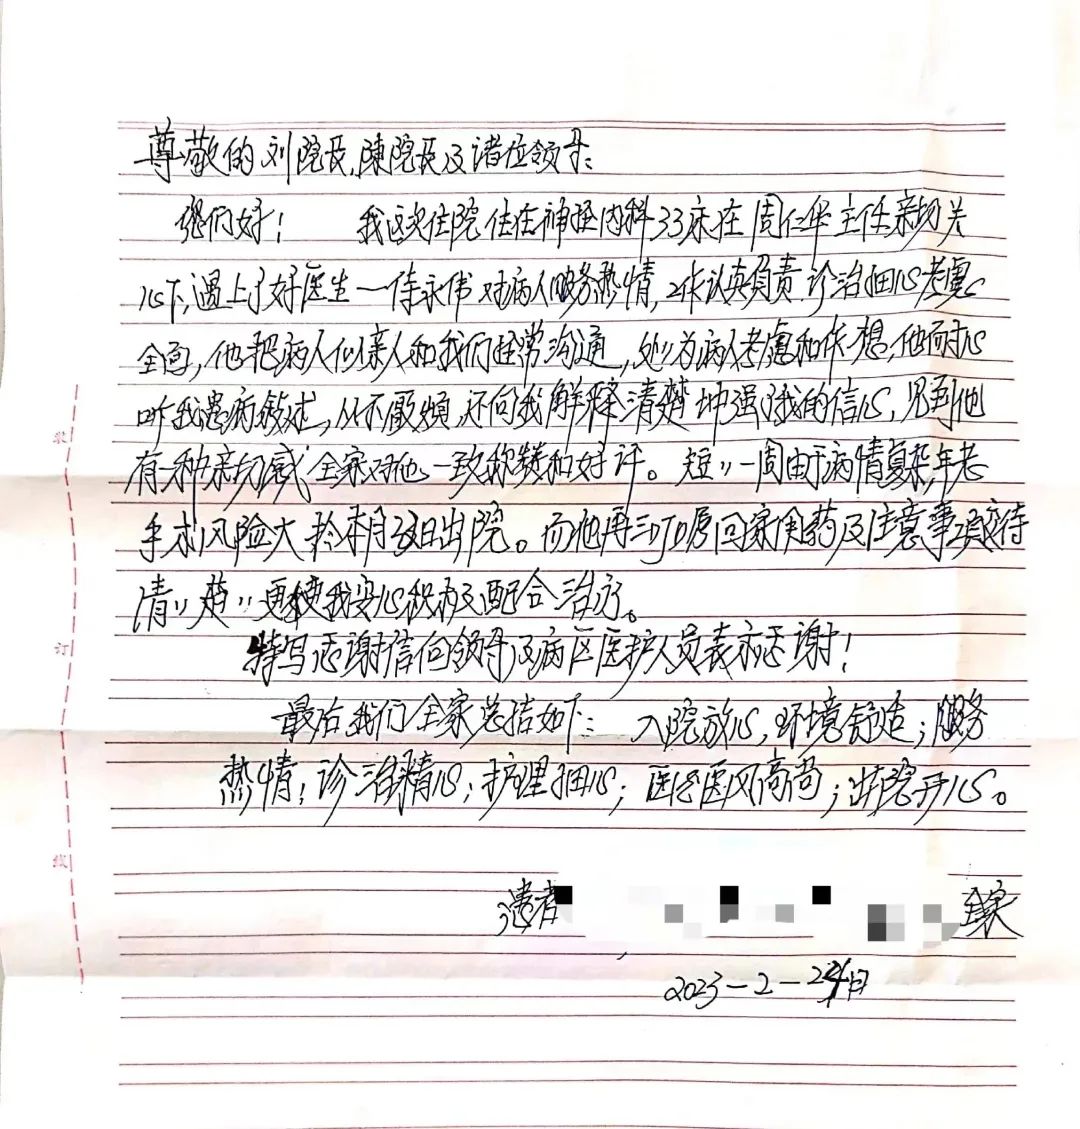 尊敬的刘院长,陳院长及诸位领导:
您们好! 我这次住院住在神经内科33床在周仁华主任亲切关
心下,遇上了好医生一侍永伟对病人服务热情,工作认真負责诊治细心考慮
全面,他把病人似亲人和我们经常沟通,处〃为病人考慮和作想,他耐心
听我患病敍述,从不厭煩,还向我解释清楚增强了我的信心,见到他
有一种亲切感全家对他一致称赞和好评。短〃一周由于病情复杂,年老
手术风险大於本月23日出院。而他再三叮嘱回家用药及注意事项交待
清〃楚〃更使我安心积极配合治疗。
特写感谢信向领导及病区医护人员表示感谢!
最后我们全家总结如下: 入院放心,环境舒适;服务
热情;诊治精心;护理细心;医德医风高尚;出院开心。
患者 全家
2023-2-24日
装
订
线